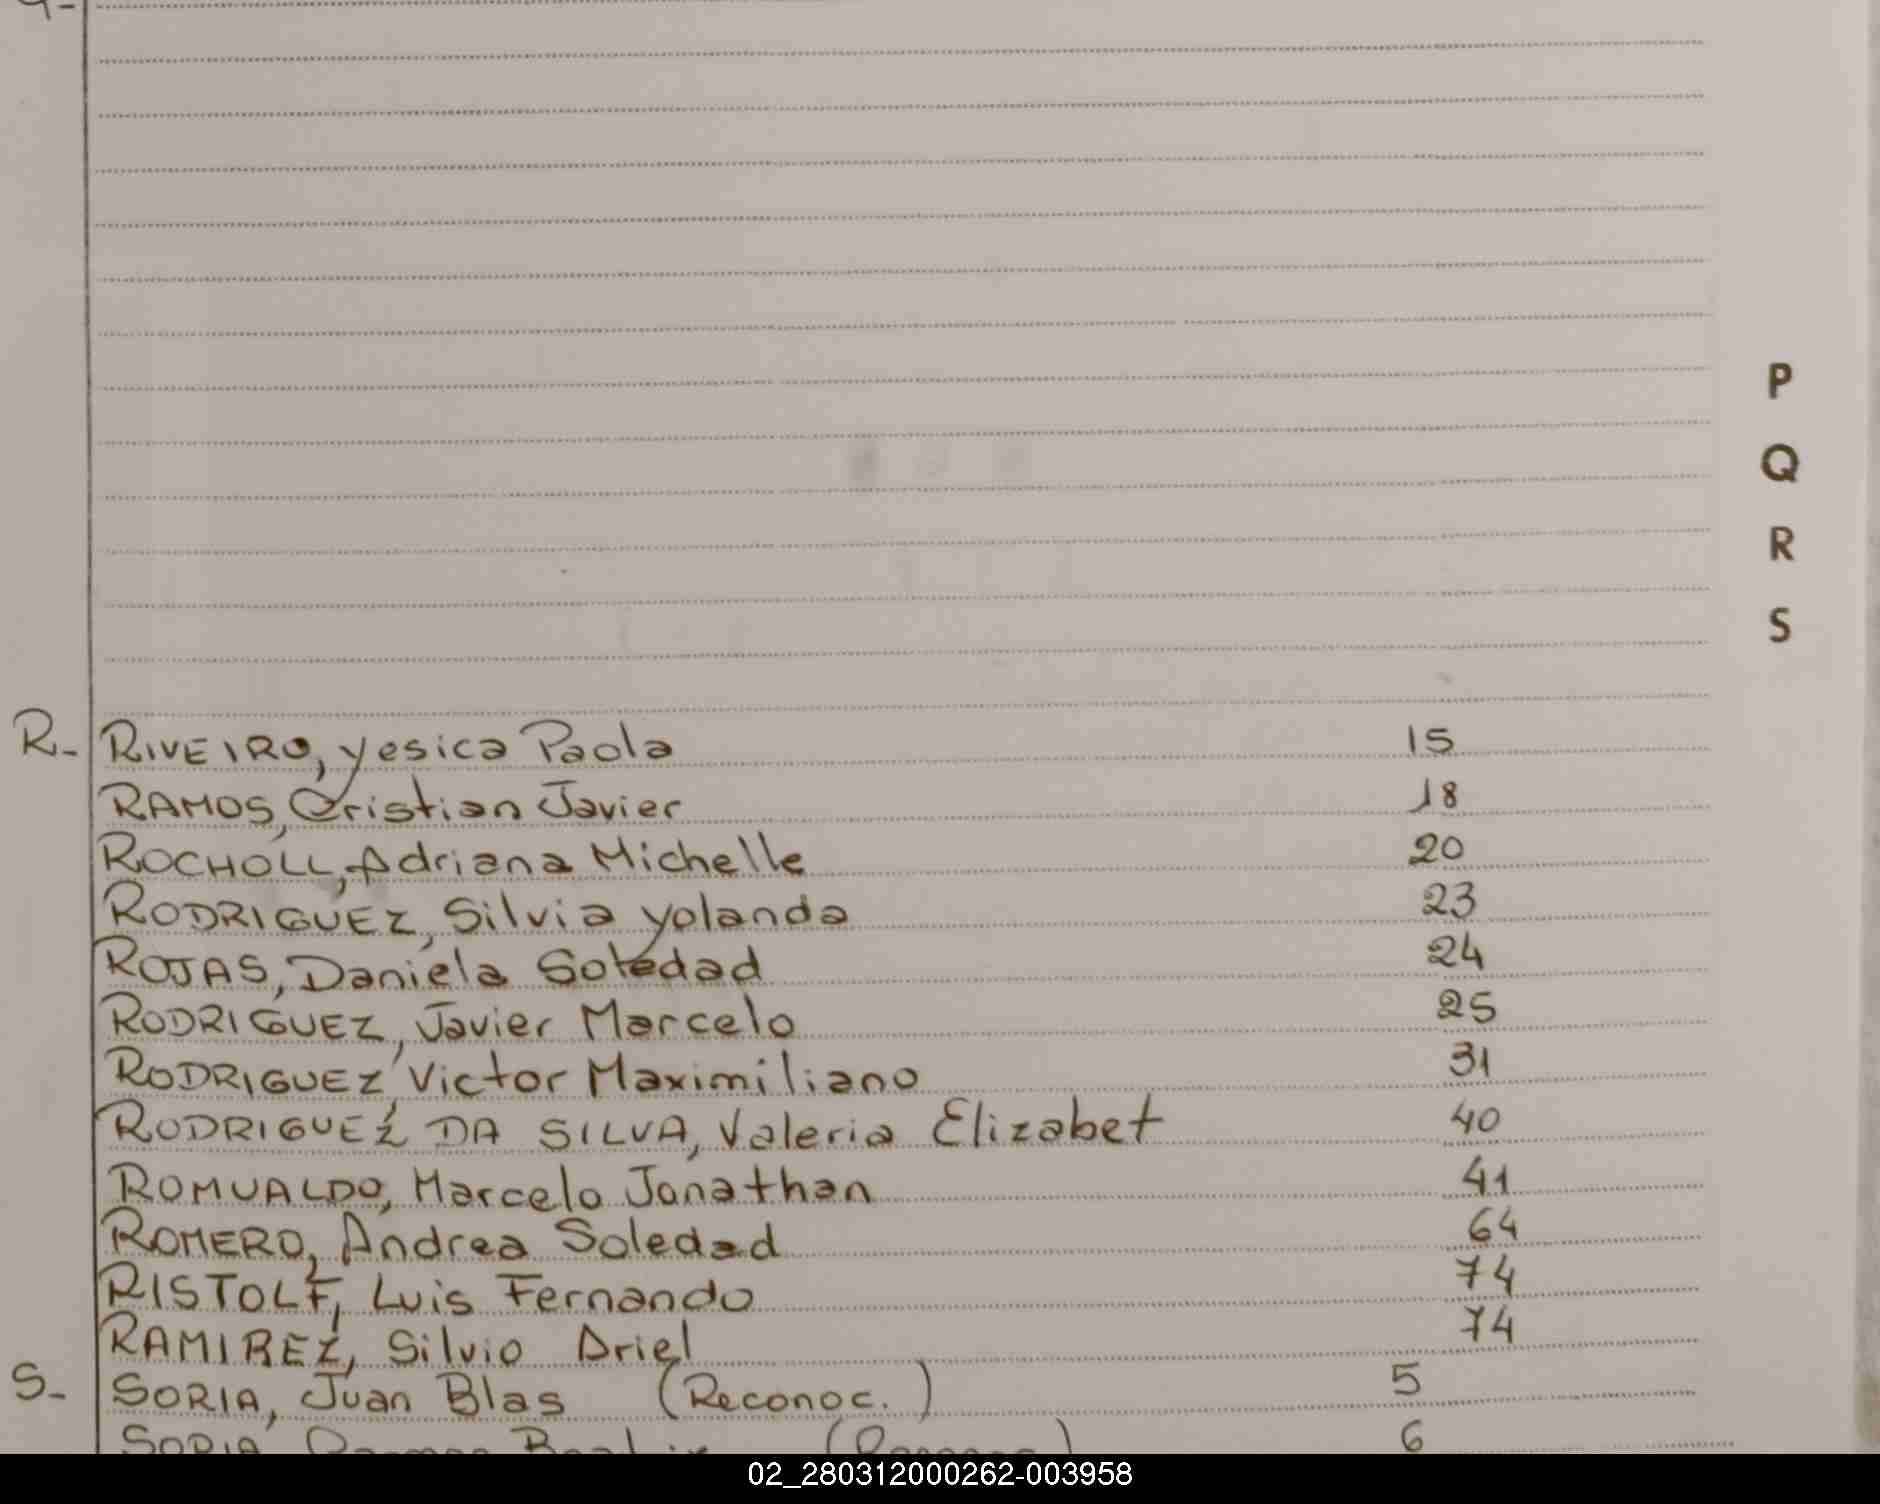 Q-
P
Q
R
S
R- RIVEIRO, Yesica Paola 15
RAMOS, Cristian Javier 18
ROCHOLL, Adriana Michelle 20
RODRIGUEZ, Silvia Yolanda 23
ROJAS, Daniela Soledad 24
RODRIGUEZ, Javier Marcelo 25
RODRIGUEZ, Victor Maximiliano 31
RODRIGUEZ DA SILVA, Valeria Elizabet 40
ROMUALDO, Marcelo Jonathan 41
ROMERO, Andrea Soledad 64
RISTOLF, Luis Fernando 74
RAMIREZ, Silvio Ariel 74
S- SORIA, Juan Blas (Reconoc.) 5
SORIA 6
02_280312000262-003958